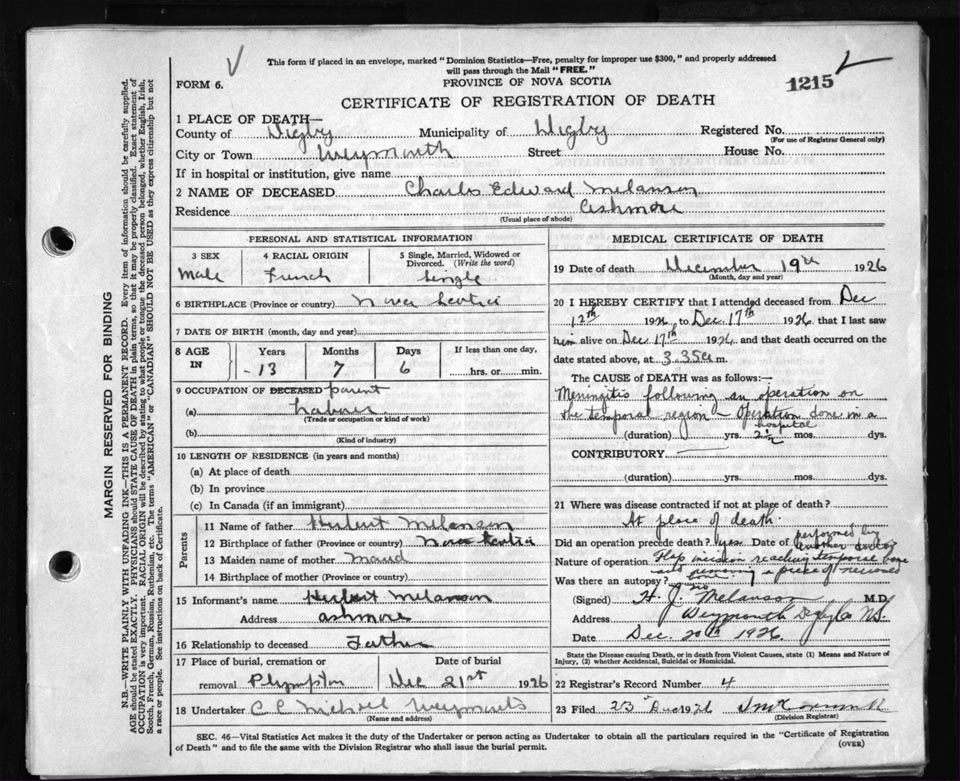 This form if placed in an envelope, marked "Dominion Statistics—Free, penalty for improper use $300," and properly addressed
will pass through the Mail "FREE."
FORM 6.
PROVINCE OF NOVA SCOTIA
1215
CERTIFICATE OF REGISTRATION OF DEATH
1 PLACE OF DEATH—
County of Digby Municipality of Digby Registered No.
(For use of Registrar General only)
City or Town Weymouth Street House No.
If in hospital or institution, give name
2 NAME OF DECEASED Charles Edward Melanson
Residence Ashmore
(Usual place of abode)
PERSONAL AND STATISTICAL INFORMATION
3 SEX 4 RACIAL ORIGIN 5 Single, Married, Widowed or
Divorced. (Write the word)
Male French Single
6 BIRTHPLACE (Province or country) Nova Scotia
7 DATE OF BIRTH (month, day and year)
8 AGE IN Years Months Days If less than one day,
13 7 6 hrs. or min.
9 OCCUPATION OF DECEASED parent
(a) Labourer
(Trade or occupation or kind of work)
(b)
(Kind of industry)
10 LENGTH OF RESIDENCE (in years and months)
(a) At place of death
(b) In province
(c) In Canada (if an immigrant)
Parents
11 Name of father Herbert Melanson
12 Birthplace of father (Province or country) Nova Scotia
13 Maiden name of mother Maud
14 Birthplace of mother (Province or country)
15 Informant's name Herbert Melanson
Address Ashmore
16 Relationship to deceased Father
17 Place of burial, cremation or Date of burial
removal Plympton Dec 21st 1926
18 Undertaker C C Weymouth
(Name and address)
MEDICAL CERTIFICATE OF DEATH
19 Date of death December 19th 1926
(Month, day and year)
20 I HEREBY CERTIFY that I attended deceased from Dec
12th 1926 to Dec. 17th 1926 that I last saw
him alive on Dec 17th 1926 and that death occurred on the
date stated above, at 3.35 a m.
The CAUSE OF DEATH was as follows:—
Meningitis following an operation on
the temporal region — Operation done in a
hospital
(duration) yrs. 2½ mos. dys.
CONTRIBUTORY
(duration) yrs. mos. dys.
21 Where was disease contracted if not at place of death?
At place of death.
Did an operation precede death? yes. Date of performed by
another doctor
Nature of operation Flap incision reaching temporal bone
and removing a piece of
bone
Was there an autopsy? no
(Signed) H. J. Melanson M.D.
Address Weymouth Digby Co N.S.
Date Dec. 20th 1926
State the Disease causing Death, or in death from Violent Causes, state (1) Means and Nature of
Injury, (2) whether Accidental, Suicidal or Homicidal.
22 Registrar's Record Number 4
23 Filed 23 Dec 1926
(Division Registrar)
SEC. 46—Vital Statistics Act makes it the duty of the Undertaker or person acting as Undertaker to obtain all the particulars required in the "Certificate of Registration
of Death" and to file the same with the Division Registrar who shall issue the burial permit.
(OVER)
MARGIN RESERVED FOR BINDING
N.B.—WRITE PLAINLY WITH UNFADING INK—THIS IS A PERMANENT RECORD. Every item of information should be carefully supplied.
AGE should be stated EXACTLY. PHYSICIANS should STATE CAUSE OF DEATH in plain terms, so that it may be properly classified. Exact statement of
OCCUPATION is very important. RACIAL ORIGIN will be described by stating to what people or tongue the deceased person belonged, whether English, Irish,
Scotch, French, German, Russian, Ruthenian, etc. The terms "AMERICAN" or "CANADIAN" SHOULD NOT BE USED as they express citizenship but not
a race or people. See instructions on back of Certificate.